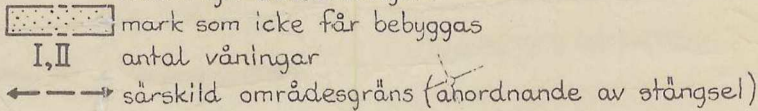 mark som icke får bebyggas
I, II antal våningar
särskild områdesgräns (anordnande av stängsel)